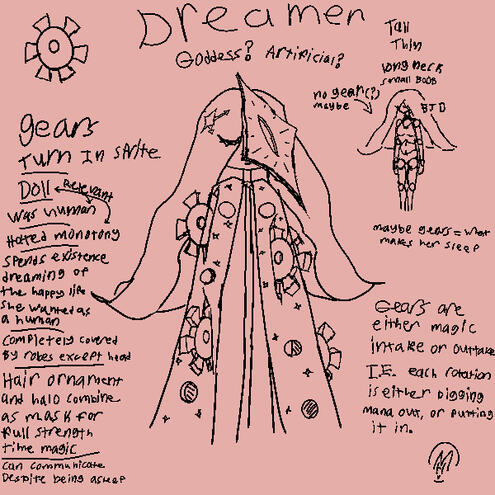 Dreamer
Goddess? Artificial?
Tall
Thin
long neck
small BOOB
no gear(?)
maybe
BJD
gears
Turn In Strife
Doll
Relevant
was human
Hated monotony
spends existence
dreaming of
the happy life
she wanted as
a human
Completely covered
By robes except head
Hair ornament
and halo combine
as mask for
full strength
time magic
can communicate
Despite being asleep
maybe gears = what
makes her sleep
Gears are
either magic
intake or outtake
I.E. each rotation
is either digging
mana out, or putting
it in.